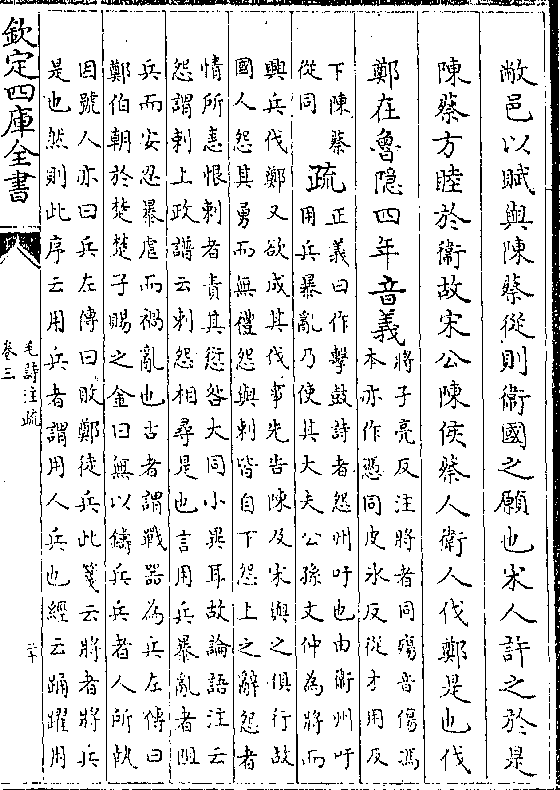 敝邑以賦與陳蔡從則衛國之願也宋人許之於是
陳蔡方睦於衛故宋公陳侯蔡人衛人伐鄭是也伐
鄭在魯隱四年音義將子亮反注將者同殤音傷馮
本亦作憑同皮氷反從才用反
下陳蔡
從同
疏正義曰作擊鼓詩者怨州吁也由衛州吁
用兵暴亂乃使其大夫公孫文仲為將而
興兵伐鄭又欲成其伐事先告陳及宋與之俱行故
國人怨其勇而無禮怨與刺皆自下怨上之辭怨者
情所恚恨刺者責其愆咎大同小異耳故論語注云
怨謂刺上政譜云刺怨相尋是也言用兵暴亂者阻
兵而安忍暴虐而禍亂也古者謂戰器為兵左傳曰
鄭伯朝於楚楚子賜之金曰無以鑄兵兵者人所執
因號人亦曰兵左傳曰敗鄭徒兵此箋云將者將兵
是也然則此序云用兵者謂用人兵也經云踊躍用
欽定四庫全書
毛詩注疏
卷三